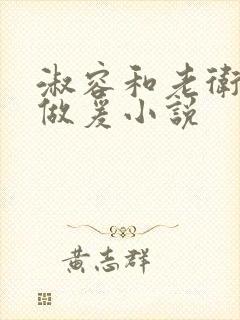 淑容和老衛
做爰小説
黃志群